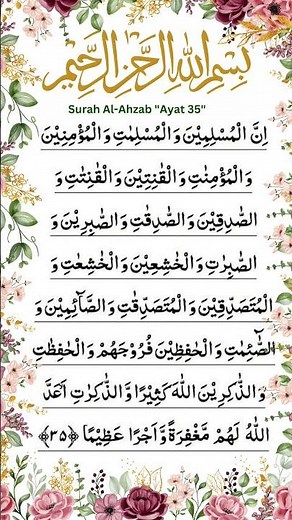 بِسْمِ اللّٰهِ الرَّحْمٰنِ الرَّحِيْمِ
Surah Al-Ahzab "Ayat 35"
اِنَّ الْمُسْلِمِيْنَ وَالْمُسْلِمٰتِ وَالْمُؤْمِنِيْنَ
وَالْمُؤْمِنٰتِ وَالْقٰنِتِيْنَ وَالْقٰنِتٰتِ وَ
الصّٰدِقِيْنَ وَالصّٰدِقٰتِ وَالصّٰبِرِيْنَ وَ
الصّٰبِرٰتِ وَالْخٰشِعِيْنَ وَالْخٰشِعٰتِ وَ
الْمُتَصَدِّقِيْنَ وَالْمُتَصَدِّقٰتِ وَالصَّآئِمِيْنَ وَ
الصّٰٓئِمٰتِ وَالْحٰفِظِيْنَ فُرُوْجَهُمْ وَالْحٰفِظٰتِ
وَالذّٰكِرِيْنَ اللّٰهَ كَثِيْرًا وَّالذّٰكِرٰتِ اَعَدَّ
اللّٰهُ لَهُمْ مَّغْفِرَةً وَّاَجْرًا عَظِيْمًا ﴿۳۵﴾